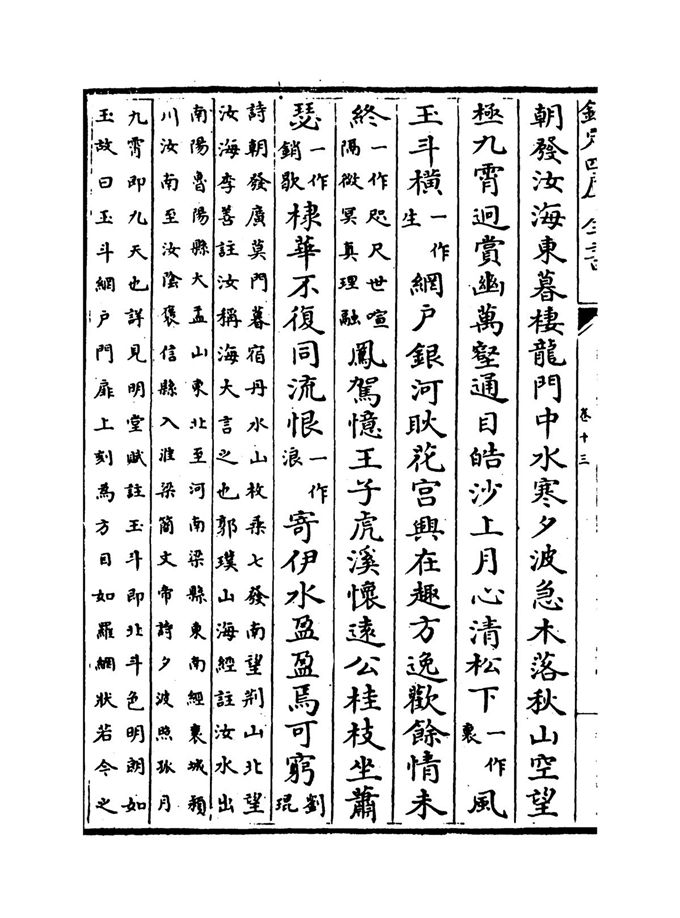 欽定四庫全書
卷十三
朝發汝海東暮棲龍門中水寒夕波急木落秋山空望
極九霄迥賞幽萬壑通目皓沙上月心清松下一作裏風
玉斗橫一作生網戶銀河耿花宮興在趣方逸歡餘情未
終一作咫尺世喧隔微冥真理融鳳駕憶王子虎溪懷遠公桂枝坐蕭
瑟一作銷歇棣華不復同流恨一作浪寄伊水盈盈焉可窮劉琨
詩朝發廣莫門暮宿丹水山枚乘七發南望荆山北望
汝海李善註汝稱海大言之也郭璞山海經註汝水出
南陽魯陽縣大盂山東北至河南梁縣東南經襄城潁
川汝南至汝陰褒信縣入淮梁簡文帝詩夕波照孤月
九霄即九天也詳見明堂賦註玉斗即北斗色明朗如
玉故曰玉斗網戶門扉上刻為方目如羅網狀若今之